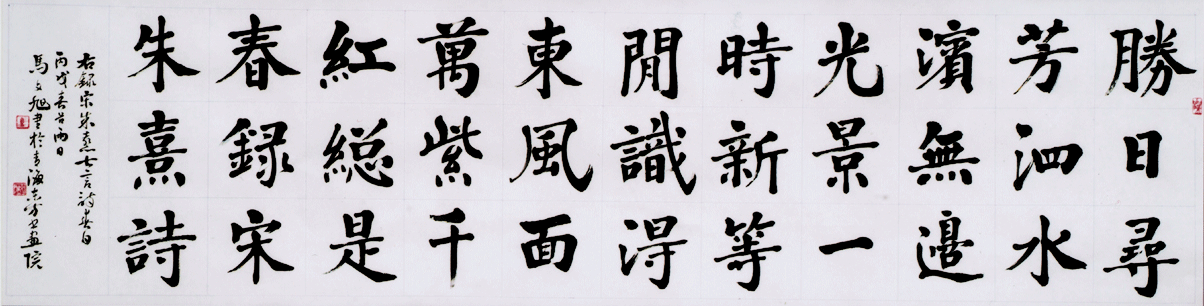 勝日尋
芳泗水
濱無邊
光景一
時新等
閒識得
東風面
萬紫千
紅総是
春録宋
朱熹詩
右録宋朱熹七言詩春日
丙戌春日
馬文旭書於青海書画院